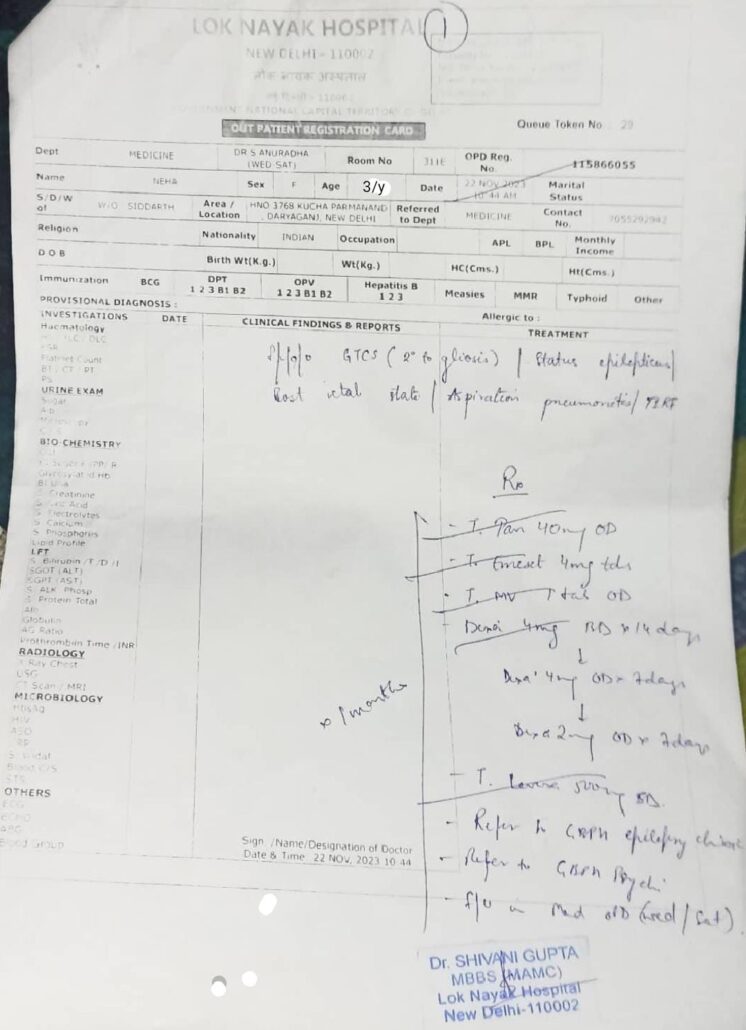 LOK NAYAK HOSPITAL 1
NEW DELHI - 110002
लोक नायक अस्पताल
OUT PATIENT REGISTRATION CARD
Queue Token No 29
Dept MEDICINE DR S ANURADHA (WED SAT) Room No 311E OPD Reg. No. 115866055
Name NEHA Sex F Age 3/y Date 22 NOV 2023 10:44 AM Marital Status
S/D/W of W/O SIDDARTH Area / Location HNO 3768 KUCHA PARMANAND, DARYAGANJ, NEW DELHI Referred to Dept MEDICINE Contact No.
Religion Nationality INDIAN Occupation APL BPL Monthly Income
D O B Birth Wt(K.g.) Wt(Kg.) HC(Cms.) Ht(Cms.)
Immunization BCG DPT 1 2 3 B1 B2 OPV 1 2 3 B1 B2 Hepatitis B 1 2 3 Measies MMR Typhoid Other
PROVISIONAL DIAGNOSIS : Allergic to :
INVESTIGATIONS DATE CLINICAL FINDINGS & REPORTS TREATMENT
Haematology
GTCS (2° to gliosis) / Status epilepticus/
Post ictal state / Aspiration pneumonitis/
Platelet Count
BT / CT / PT
PS
URINE EXAM
Sugar
BIO CHEMISTRY
Rx
Glycosylated Hb
Bl Urea
S. Creatinine
S. Uric Acid
S. Electrolytes
S. Calcium
S. Phosphorus
Lipid Profile
LFT
S. Bilirubin /T /D /I
SGOT (ALT)
SGPT (AST)
S. ALK Phosp
S. Protein Total
Alb
Globulin
AG Ratio
Prothrombin Time /INR
RADIOLOGY
X Ray Chest
USG
CT Scan / MRI
MICROBIOLOGY
HBsAg
HIV
ASO
S. Widal
Blood C/S
STS
OTHERS
ECG
ECHO
ABG
Blood Group
- T. Pan 40mg OD
- T. Emeset 4mg tds
- T. MV 1 tab OD
- Dexa 4mg BD x 14 days
↓
Dexa 4mg OD x 7days
↓
Dexa 2mg OD x 7days
x 1 months
- T. Levera 500mg BD
- Refer to GBPH epilepsy clinic
- Refer to GBPH Psychi
- f/u in Med OPD (wed / Sat).
Sign /Name/Designation of Doctor
Date & Time 22 NOV, 2023 10 44
Dr. SHIVANI GUPTA
MBBS (MAMC)
Lok Nayak Hospital
New Delhi-110002